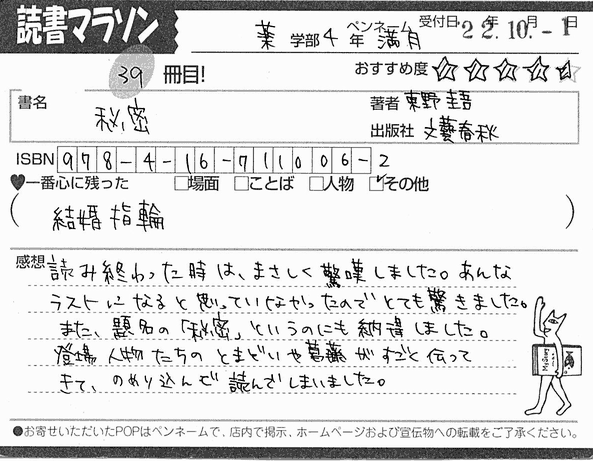 読書マラソン
薬 学部 4 年 ペンネーム 満月 受付日: 22年10月-1日
39 冊目! おすすめ度 ☆☆☆☆☆
書名 秘密
著者 東野圭吾
出版社 文藝春秋
ISBN 978-4-16-711006-2
♥一番心に残った □場面 □ことば □人物 ☑その他
(結婚指輪)
感想 読み終わった時は、まさしく驚嘆しました。あんな
ラストになると思っていなかったのでとても驚きました。
また、題名の「秘密」というのにも納得しました。
登場人物たちのとまどいや葛藤がすごく伝って
きて、のめり込んで読んでしまいました。
●お寄せいただいたPOPはペンネームで、店内で掲示、ホームページおよび宣伝物への転載をご了承ください。